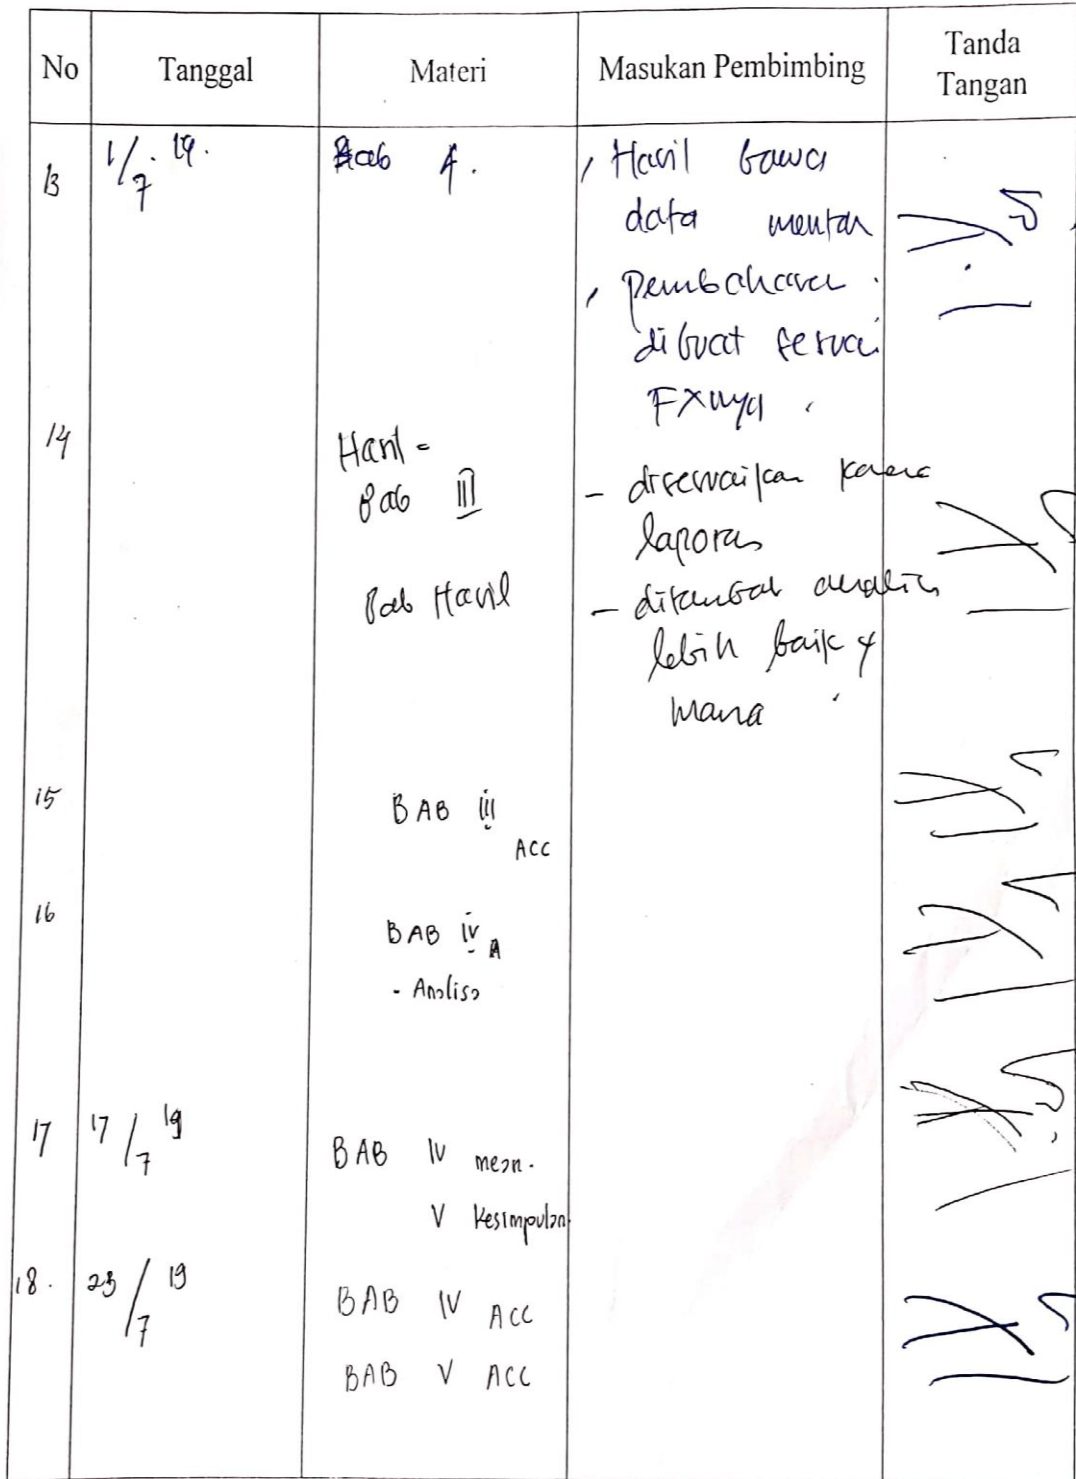 No Tanggal Materi Masukan Pembimbing Tanda Tangan
13 1/7.19. Bab 4. , Hasil bawa
data mentah
, Pembahasan.
dibuat sesuai
FXnya.
14 Hasil -
Bab III - disesuaikan
laporan
Bab Hasil - analisis
lebih baik
mana
15 BAB III
ACC
16 BAB IV A
- Analisa
17 17/7 19 BAB IV mean.
V Kesimpulan
18. 23/7 19 BAB IV ACC
BAB V ACC